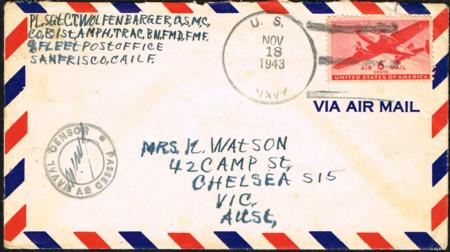 PL.SGt.C.T.WOLFENBARGER,U.S,MC,
CO,B,1st,AMPH,TRAC,BN,FMD,F.MF.
% FLEET POST OFFICE
SANFRISCO,CAILF.
U. S.
NOV
18
1943
NAVY
AIR 6 MAIL
CENTS
UNITED STATES OF AMERICA
VIA AIR MAIL
PASSED BY NAVAL CENSOR
MRS. K. WATSON
42 CAMP St,
CHELSEA S15
VIC,
AUST,